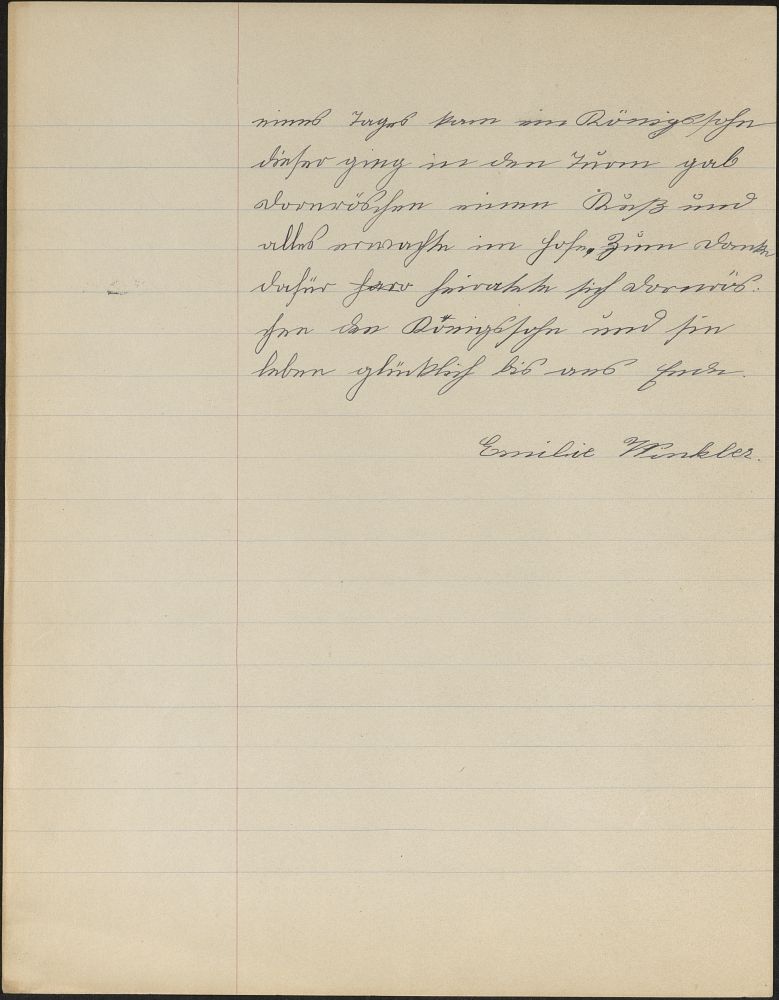 eines Tages kam ein Königssohn
dieser ging in den Turm gab
Dornröschen einen Kuß und
alles erwachte im Hofe. Zum Danke
dafür heiratete sich Dornrös-
chen den Königssohn und sie
leben glücklich bis ans Ende.
Emilie Winkler.